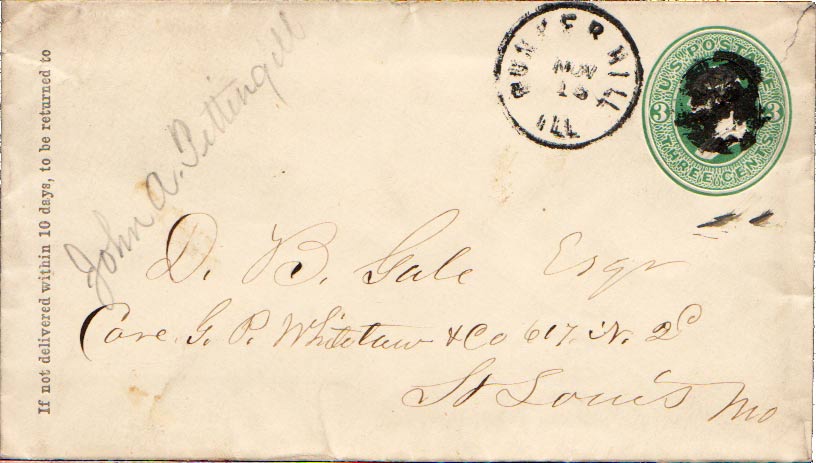 If not delivered within 10 days, to be returned to
John A. Pettingill
BUNKER HILL
NOV
18
ILL
U.S. POSTAGE
3 3
THREE CENTS
D. B. Gale Esqr
Care. G. P. Whitelaw & Co 617. N. 2d
St Louis Mo